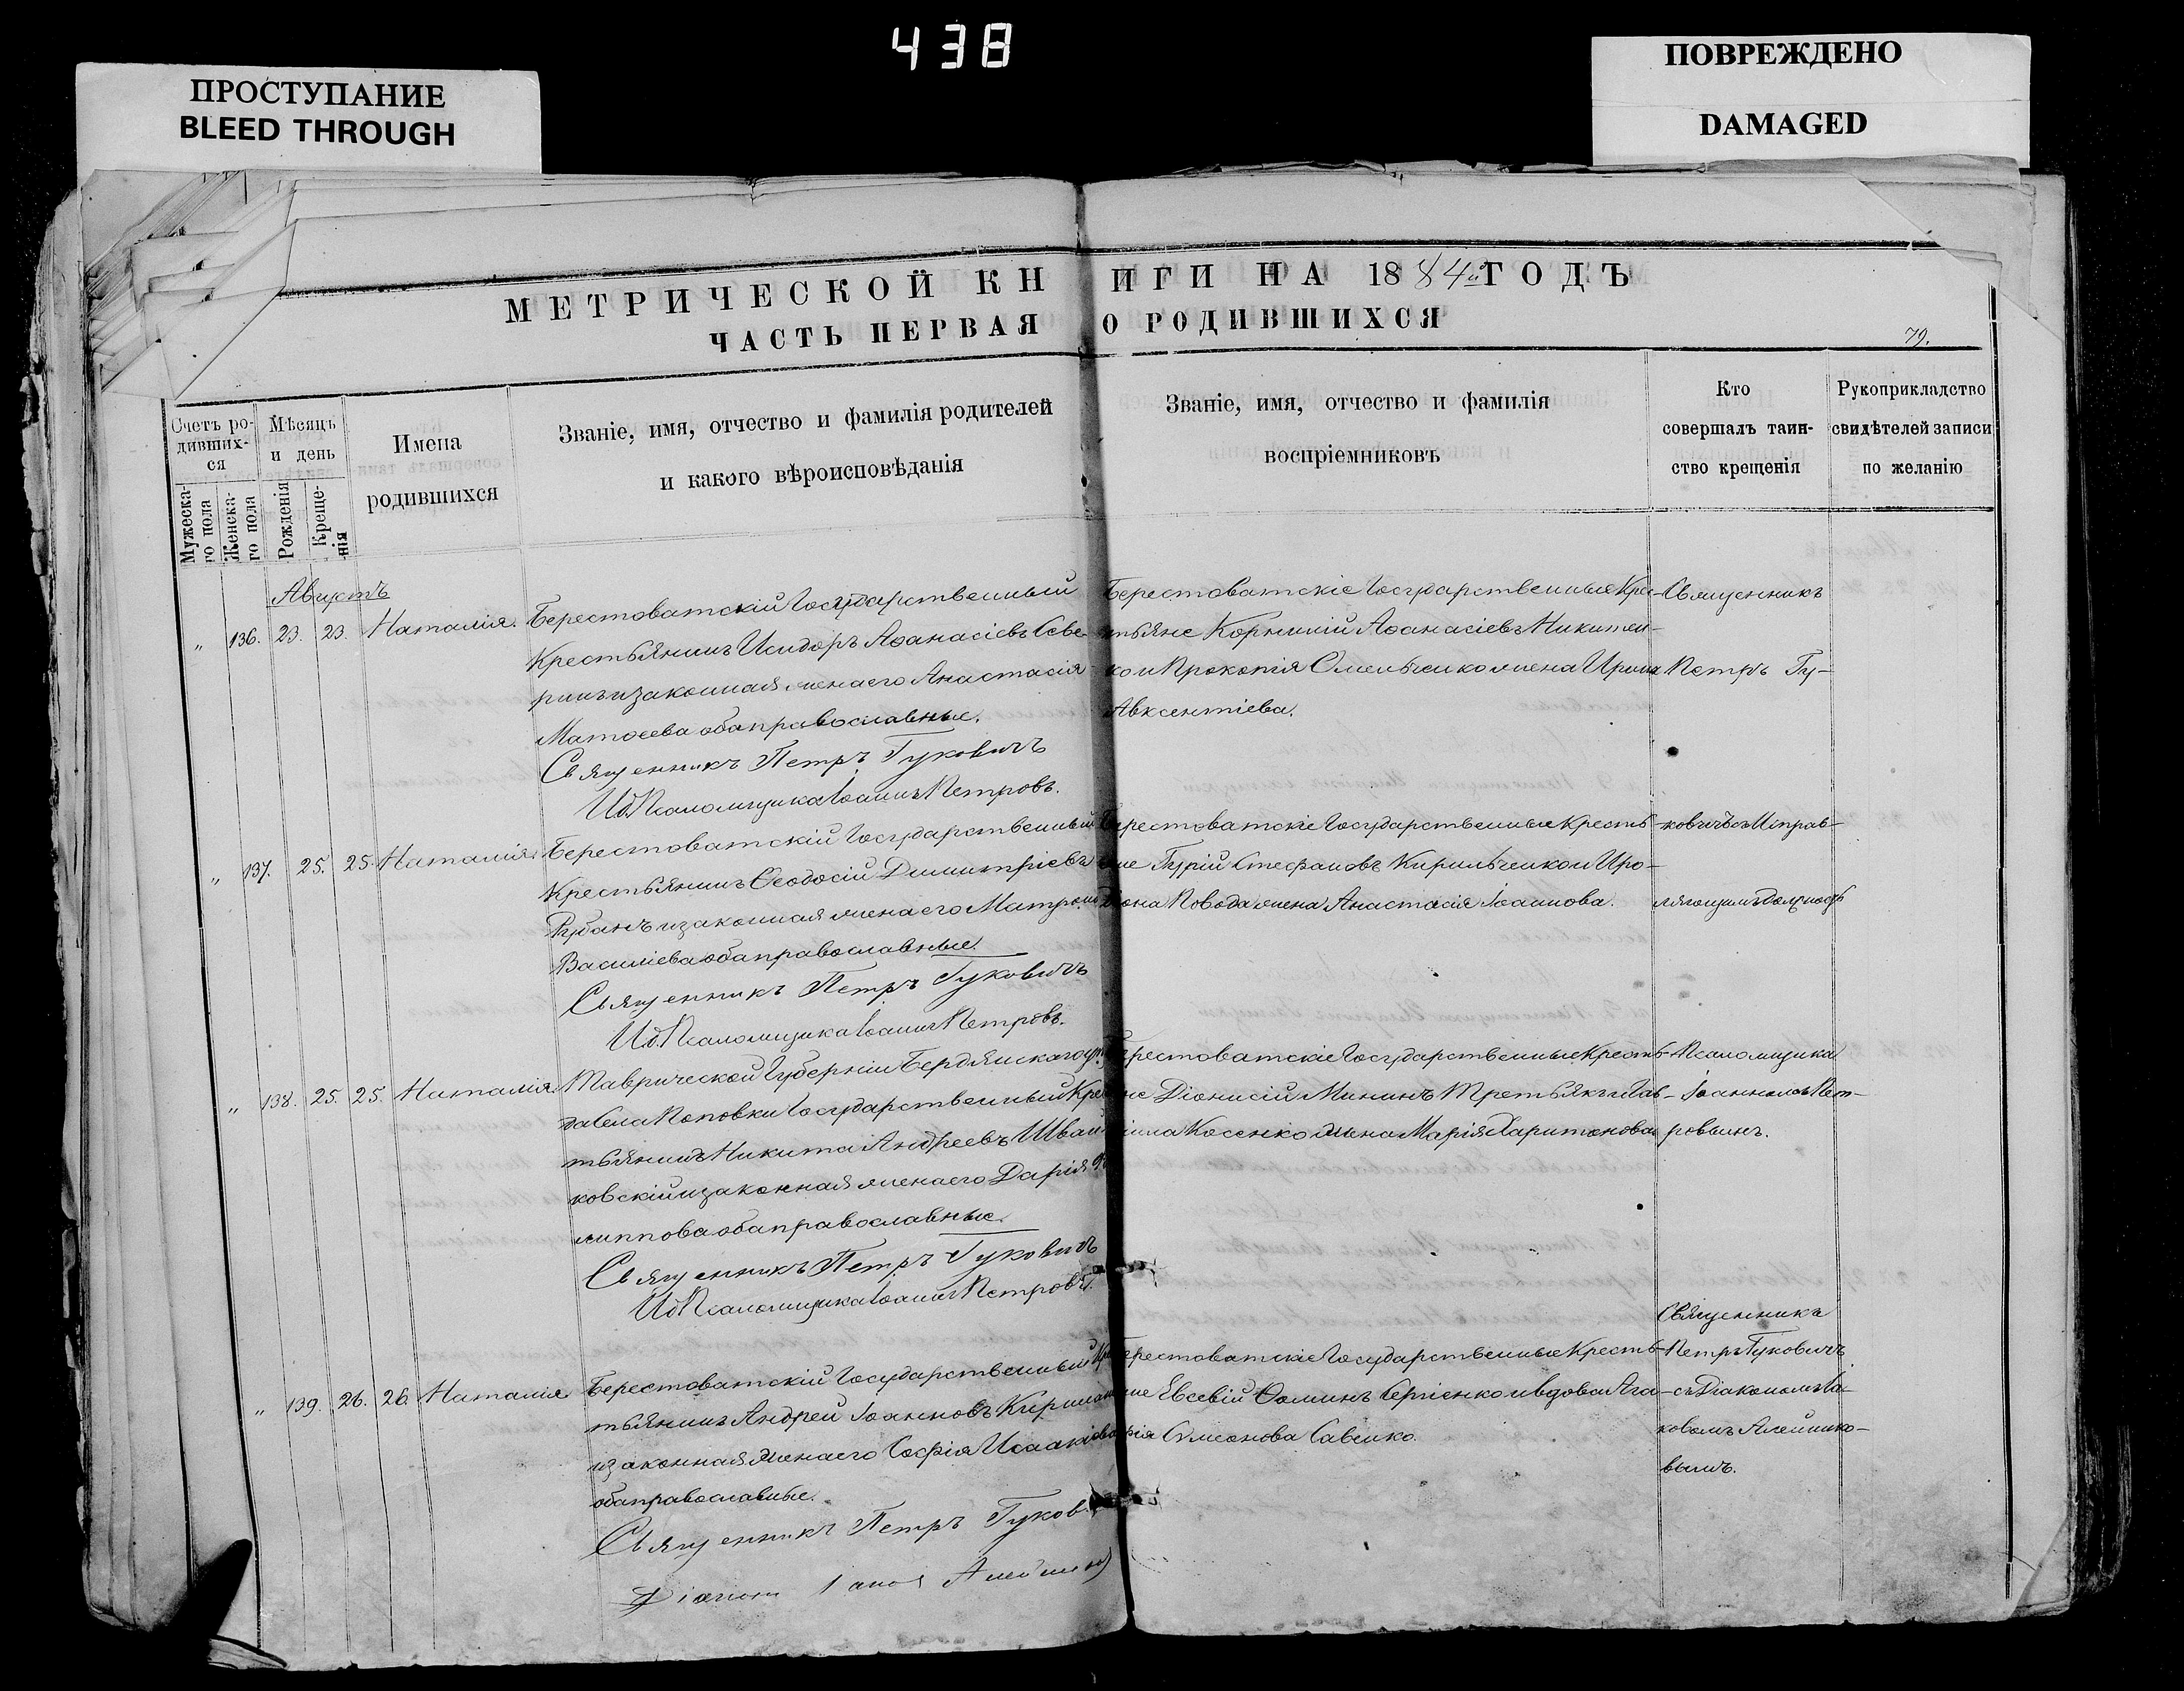 438
ПРОСТУПАНИЕ
BLEED THROUGH
ПОВРЕЖДЕНО
DAMAGED
МЕТРИЧЕСКОЙ КНИГИ НА 1884й ГОДЪ
ЧАСТЬ ПЕРВАЯ О РОДИВШИХСЯ
79.
Счетъ ро-
дивших-
ся
Мужеска-
го пола
Женска-
го пола
Мѣсяцъ
и день
Рожденія
Креще-
нія
Имена
родившихся
Званіе, имя, отчество и фамилія родителей
и какого вѣроисповѣданія
Званіе, имя, отчество и фамилія
воспріемниковъ
Кто
совершалъ таин-
ство крещенія
Рукоприкладство
свидѣтелей записи
по желанію
Августъ
„ 136. 23. 23. Наталія.
Берестоватскій Государственный
Крестьянинъ Исидоръ Аѳанасіевъ Севе-
ринъ и законная жена его Анастасія
Матѳеева оба православные.
Священникъ Петръ Гуковичъ
И.д. Псаломщика Іоаннъ Петровъ.
Берестоватскіе Государственные Кре-
стьяне Корнилій Аѳанасіевъ Никитен-
ко и Прокопія Омельченко жена Ирина
Авксентіева.
Священникъ
Петръ Гу-
„ 137. 25. 25. Наталія.
Берестоватскій Государственный
Крестьянинъ Ѳеодосій Димитріевъ
Рубанъ и законная жена его Матрона
Василіева оба православные.
Священникъ Петръ Гуковичъ
И.д. Псаломщика Іоаннъ Петровъ.
Берестоватскіе Государственные Кресть-
яне Гурій Стефановъ Кирильченко и Иро-
діона Повода жена Анастасія Іоаннова.
ковичъ съ Исправ-
ляющимъ должность
„ 138. 25. 25. Наталія.
Таврической Губерніи Бердянскаго уѣз-
да Села Поповки Государственный Кре-
стьянинъ Никита Андреевъ Шван-
ковскій и законная жена его Дарія Фи-
липпова оба православные.
Священникъ Петръ Гуковичъ
И.д. Псаломщика Іоаннъ Петровъ.
Берестоватскіе Государственные Кресть-
яне Діонисій Мининъ Третьякъ и Гав-
іила Косенко жена Марія Харитонова
Псаломщика
Іоанномъ Пет-
ровымъ.
„ 139. 26. 26. Наталія
Берестоватскій Государственный Кре-
стьянинъ Андрей Іоанновъ
и законная жена его Софія Исаакіева
оба православные.
Священникъ Петръ Гукович
Діаконъ
Берестоватскіе Государственные Кресть-
яне Евсевій Ѳоминъ Сергіенко и вдова Ага-
фія Симеонова Савенко.
Священникъ
Петръ Гуковичъ
съ Діакономъ Іа-
ковомъ Алейнико-
вымъ.